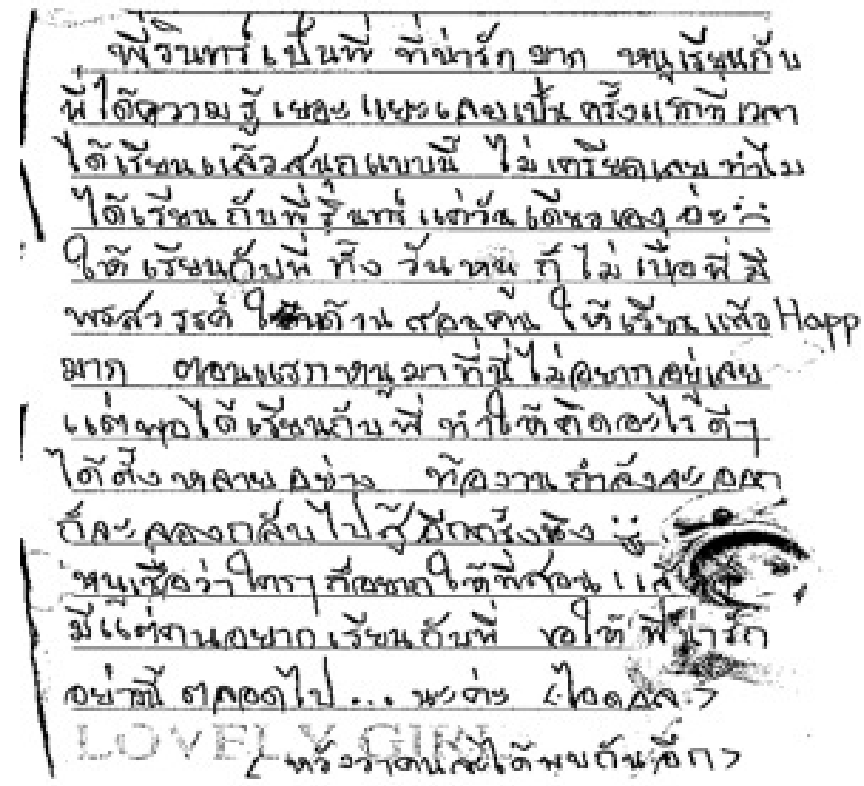 พี่รินทร์เป็นพี่ ที่น่ารัก มาก หนูเรียนกับ
พี่ได้ความรู้ เยอะแยะเลยเป็นครั้งแรกที่เวลา
ได้เรียนแล้วสนุกแบบนี้ ไม่เครียดเลย ทำไม
ได้เรียนกับพี่รินทร์ แค่วันเดียวเอง อ่ะ
ให้เรียนกับพี่ ทั้ง วันหนู ก็ ไม่ เบื่อพี่มี
พรสวรรค์ ในด้าน สอนคน ให้เรียน แล้ว Happ
มาก ตอนแรกหนูมาที่นี่ไม่อยากอยู่เลย
แต่พอได้เรียนกับพี่ ทำให้คิดอะไรดีๆ
ได้ตั้งหลายอย่าง ท้องาน กำลังจะออก
ก็จะลองกลับไปสู้อีกครั้งหนึ่ง
หนูเชื่อว่าใครๆ ก็อยากให้พี่สอน
มีแต่คนอยากเรียนกับพี่ ขอให้พี่น่ารัก
อย่างนี้ ตลอดไป... นะค่ะ
LOVELY GIRL
< หวังว่าคงจะได้พบกันอีก >